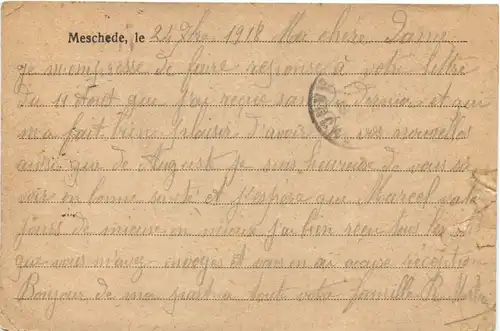 Meschede, le 24 1918 Ma chère Dame
je m'empresse de faire response à votre lettre
du 11 Aout que j'ai reçue samedi dernier et qui
m'a fait bien plaisir d'avoir de vos nouvelles
ainsi que de August je suis heureuse de vous sa
voir en bonne santé et j'espère que Marcel va
jours de mieux en mieux j'ai bien reçu tous les
que vous m'avez envoyes et vous en ai accusé réception
Bonjour de ma part a toute votre famille R.